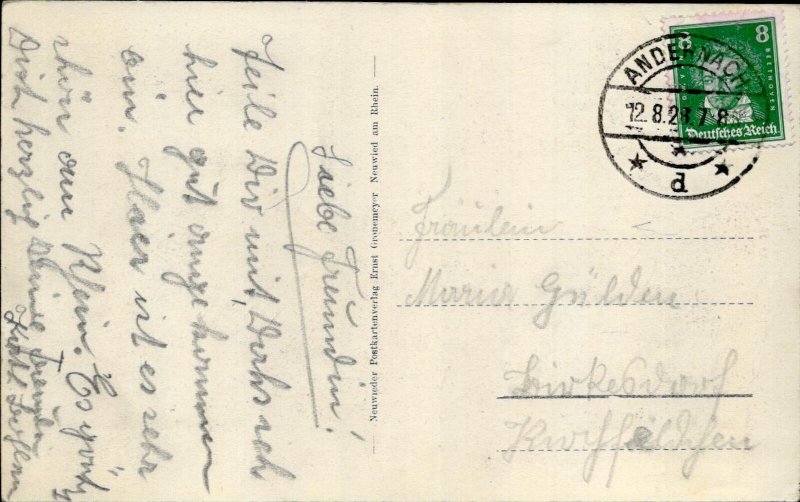 Liebe Freundin!
Teile Dir mit, daß ich
hier gut angekommen
bin. Hier ist es sehr
schön am Rhein. Es grüßt
Dich herzlich Deine Freundin
Neuwieder Postkartenverlag Ernst Gronemeyer Neuwied am Rhein.
ANDERNACH
12.8.28.7-8
d
8 8
BEETHOVEN
Deutsches Reich
Fräulein
Maria Gülden
Birkesdorf